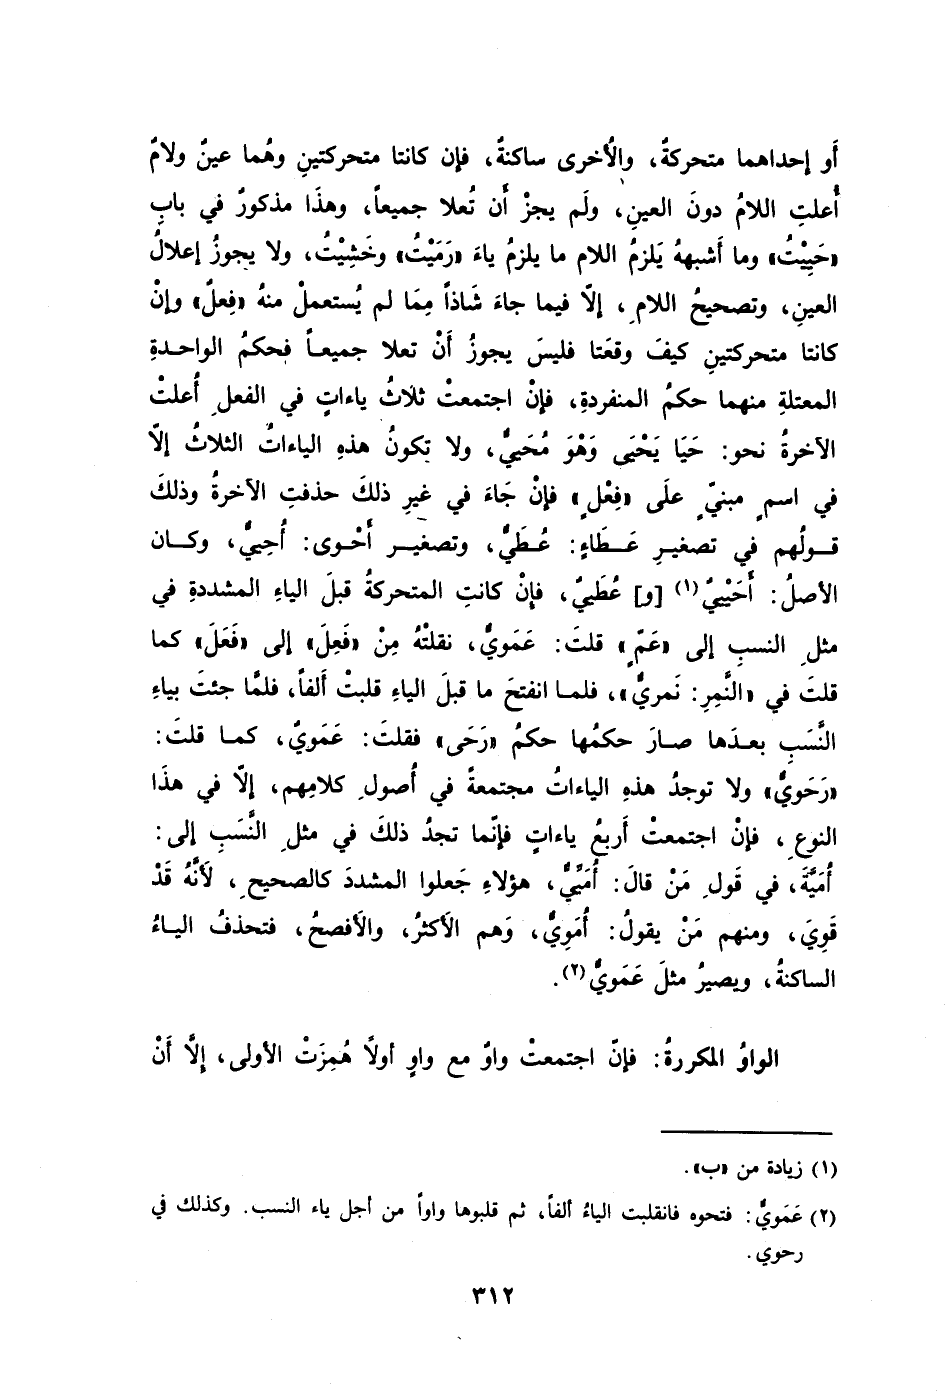 أَو إحداهما متحركةٌ، والُأخرى ساكنةٌ، فإن كانتا متحركتينِ وهُما عينٌ ولامٌ
أُعلتِ اللامُ دونَ العينِ، ولَم يجزْ أَن تُعلا جميعاً، وهذَا مذكورٌ في بابِ
«حَيِيْتُ» وما أَشبههُ يَلزمُ اللام ما يلزمُ ياءَ «رَمَيْتُ» وخَشِيْتُ، ولا يجوزُ إعلالُ
العينِ، وتصحيحُ اللامِ، إلّا فيما جاءَ شَاذاً مِمَا لم يُستعملْ منهُ «فِعلٌ» وإنْ
كانتا متحركتينِ كيفَ وقعَتا فليسَ يجوزُ أَنْ تعلا جميعاً فحكمُ الواحدةِ
المعتلةِ منهما حكمُ المنفردةِ، فإنْ اجتمعتْ ثلَاثُ ياءاتٍ في الفعلِ أُعلتْ
الآخرةُ نحو: حَيَا يَحْيَى وَهْوَ مُحَييٌّ، ولا تكونُ هذهِ الياءاتُ الثلاثُ إلّا
في اسمٍ مبنيٍّ علَى «فِعْلٍ» فإنْ جَاءَ في غيرِ ذلكَ حذفتِ الآخرةُ وذلكَ
قولُهم في تصغيرِ عَطَاءٍ: عُطَيٌّ، وتصغيرِ أَحْوى: أُحِيٌّ، وكان
الأصلُ: أَحَيْييٌ(١) [و] عُطَييٌ، فإنْ كانتِ المتحركةُ قبلَ الياءِ المشددةِ في
مثلِ النسبِ إلى «عَمٍّ» قلتَ: عَمَويٌّ، نقلتْهُ مِنْ «فَعِلَ» إلى «فَعَلَ» كما
قلتَ في «النَّمِرِ: نَمريٌّ»، فلما انفتحَ ما قبلَ الياءِ قلبتْ ألفاً، فلمَّا جئتَ بياءِ
النَّسَبِ بعدَها صارَ حكمُها حكمُ «رَحَى» فقلتَ: عَمَويٌ، كما قلتَ:
«رَحَويٌّ» ولا توجدُ هذهِ الياءاتُ مجتمعةً في أُصولِ كلامِهم، إلّا في هذَا
النوعِ، فإنْ اجتمعتْ أَربعُ ياءاتٍ فإنّما تجدُ ذلكَ في مثلِ النَّسَبِ إلى:
أُمَيَّةَ، في قَولِ مَنْ قالَ: أُمَيِّيٌّ، هؤلاءِ جَعلوا المشددَ كالصحيحِ، لَأنَّهُ قَدْ
قَوِيَ، ومنهم مَنْ يقولُ: أُمَوِيٌّ، وَهم الأَكثرُ، والأَفصحُ، فتحذفُ الياءُ
الساكنةُ، ويصيرُ مثلَ عَمَويٌّ(٢).
الواوُ المكررةُ: فإنّ اجتمعتْ واوٌ مع واوٍ أولًا هُمِزَتْ الأولى، إلَّا أَنْ
(١) زيادة من «ب».
(٢) عَمَويٌّ: فتحوه فانقلبت الياءُ ألفاً، ثم قلبوها واواً من أجل ياء النسب. وكذلك في
رحوي.
٣١٢